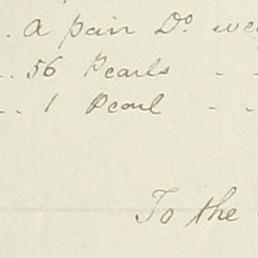 . A pair Do. we
.. 56 Pearls - -
.. 1 Pearl - -
To the